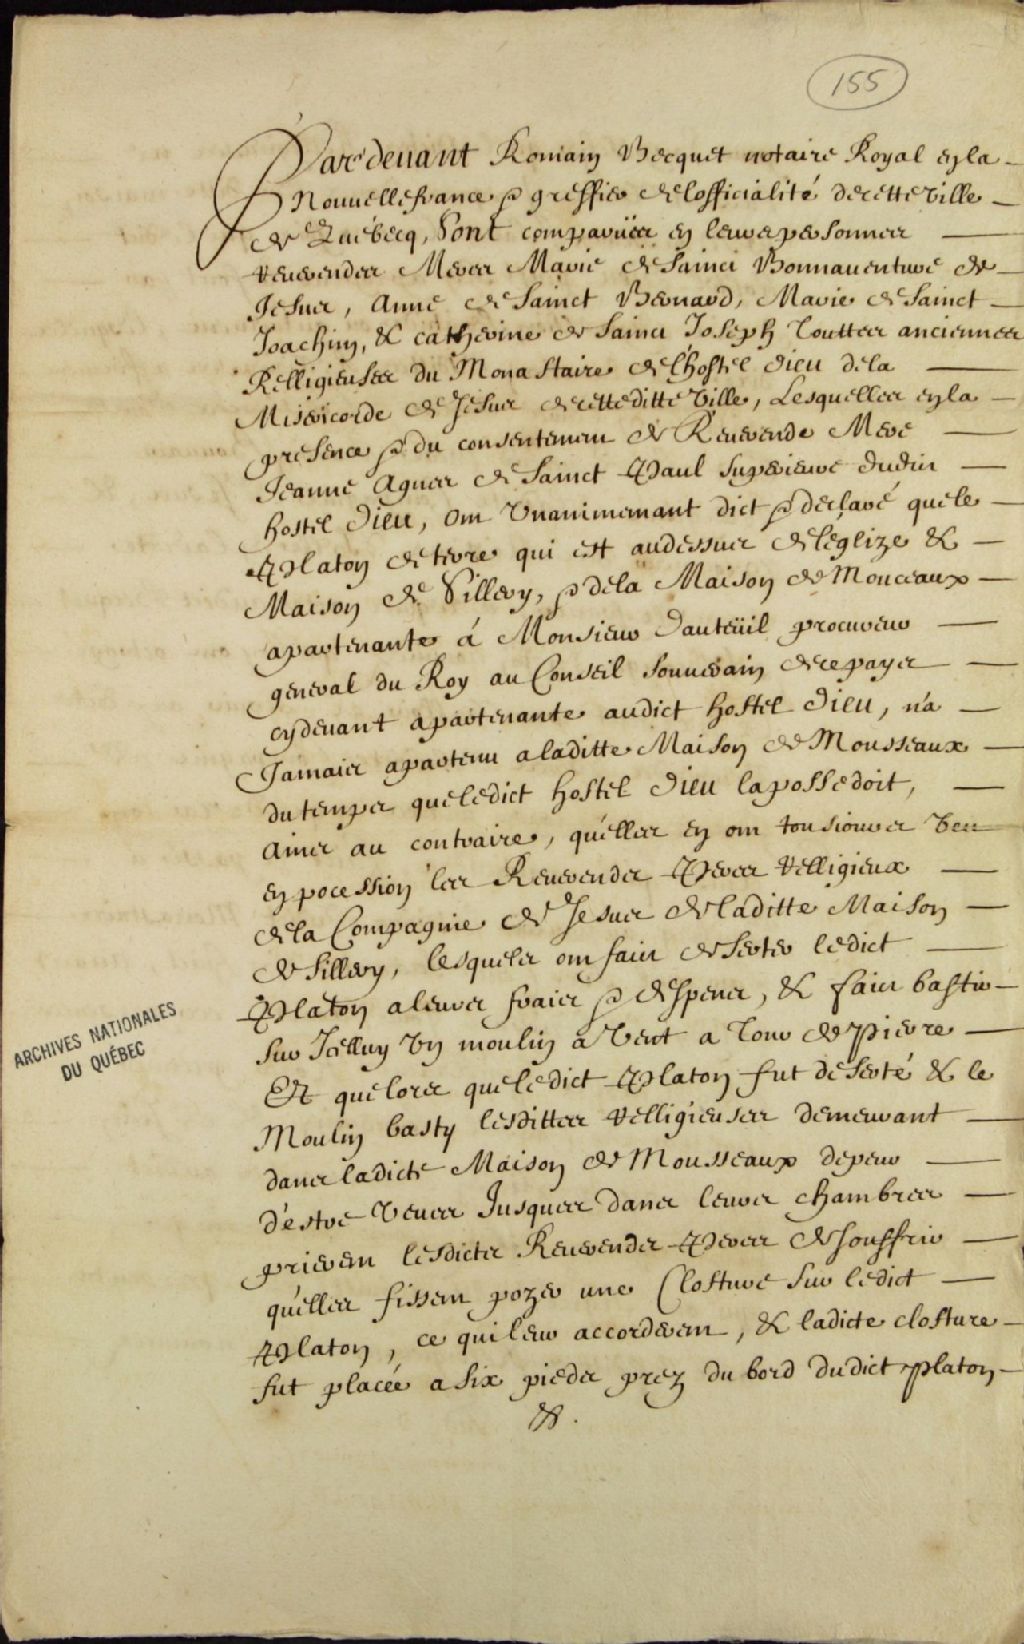 155
Pardeuant Romain Becquet notaire Royal en la
Nouuelle france & greffier de lofficialité de cette ville
de Quebecq, Sont comparües en leurs personnes
reuerendes Meres Marie de Sainct Bonnauenture de
Jesus, Anne de Sainct Bernard, Marie de Sainct
Joachim, & catherine de Sainct Joseph Touttes anciennes
Relligieuses du Monastaire de l'hostel Dieu de la
Misericorde de Jesus de cette ditte Ville, Lesquelles en la
presence & du consentement de Reuerende Mere
Jeanne Agnes de Sainct Paul superieure dudit
hostel Dieu, ont Vnanimemant dict & declaré que le
Platon de terre qui est audessus de leglize &
Maison de Sillery, & de la Maison de Monceaux
apartenante á Monsieur Dauteüil procureur
general du Roy au Conseil souuerain de ce pays
cy deuant apartenante audict hostel Dieu, n'a
Jamais apartenu a laditte Maison de Mousseaux
du temps que ledict hostel Dieu la possedoit,
ains au contraire, qu'elles en ont tousiours veu
en pocession les Reuerends Peres relligieux
de la Compagnie de Jesus de laditte Maison
de Sillery, lesquels ont fait deserter ledict
Platon a leurs frais & despens, & fait bastir
sur Icelluy Vn moulin a Vent a Tour de pierre
Et que lors que ledict Platon fut deserté & le
Moulin basty lesdittes relligieuses demeurant
dans ladicte Maison de Mousseaux depeur
d'estre Veues Jusques dans leurs chambres
prierent lesdicts Reuerends Peres de souffrir
qu'elles fissent pozer une Closture sur ledict
Platon, ce qui leur accorderent, & ladicte closture
fut placée a six pieds prez du bord dudict platon
ARCHIVES NATIONALES
DU QUÉBEC